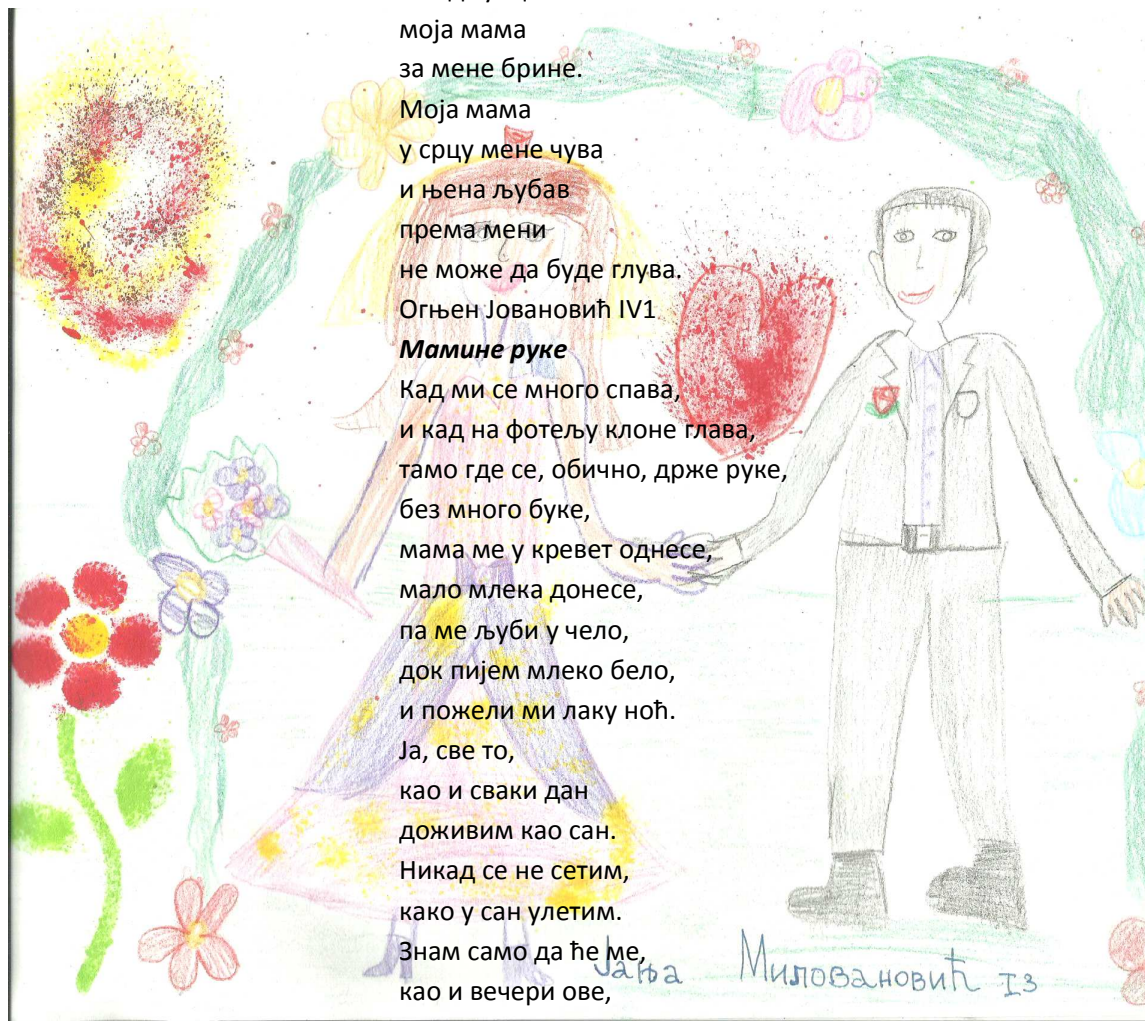 моја мама
за мене брине.
Моја мама
у срцу мене чува
и њена љубав
према мени
не може да буде глува.
Огњен Јовановић IV1
Мамине руке
Кад ми се много спава,
и кад на фотељу клоне глава,
тамо где се, обично, држе руке,
без много буке,
мама ме у кревет однесе,
мало млека донесе,
па ме љуби у чело,
док пијем млеко бело,
и пожели ми лаку ноћ.
Ја, све то,
као и сваки дан
доживим као сан.
Никад се не сетим,
како у сан улетим.
Знам само да ће ме,
као и вечери ове,
Јања Миловановић I3